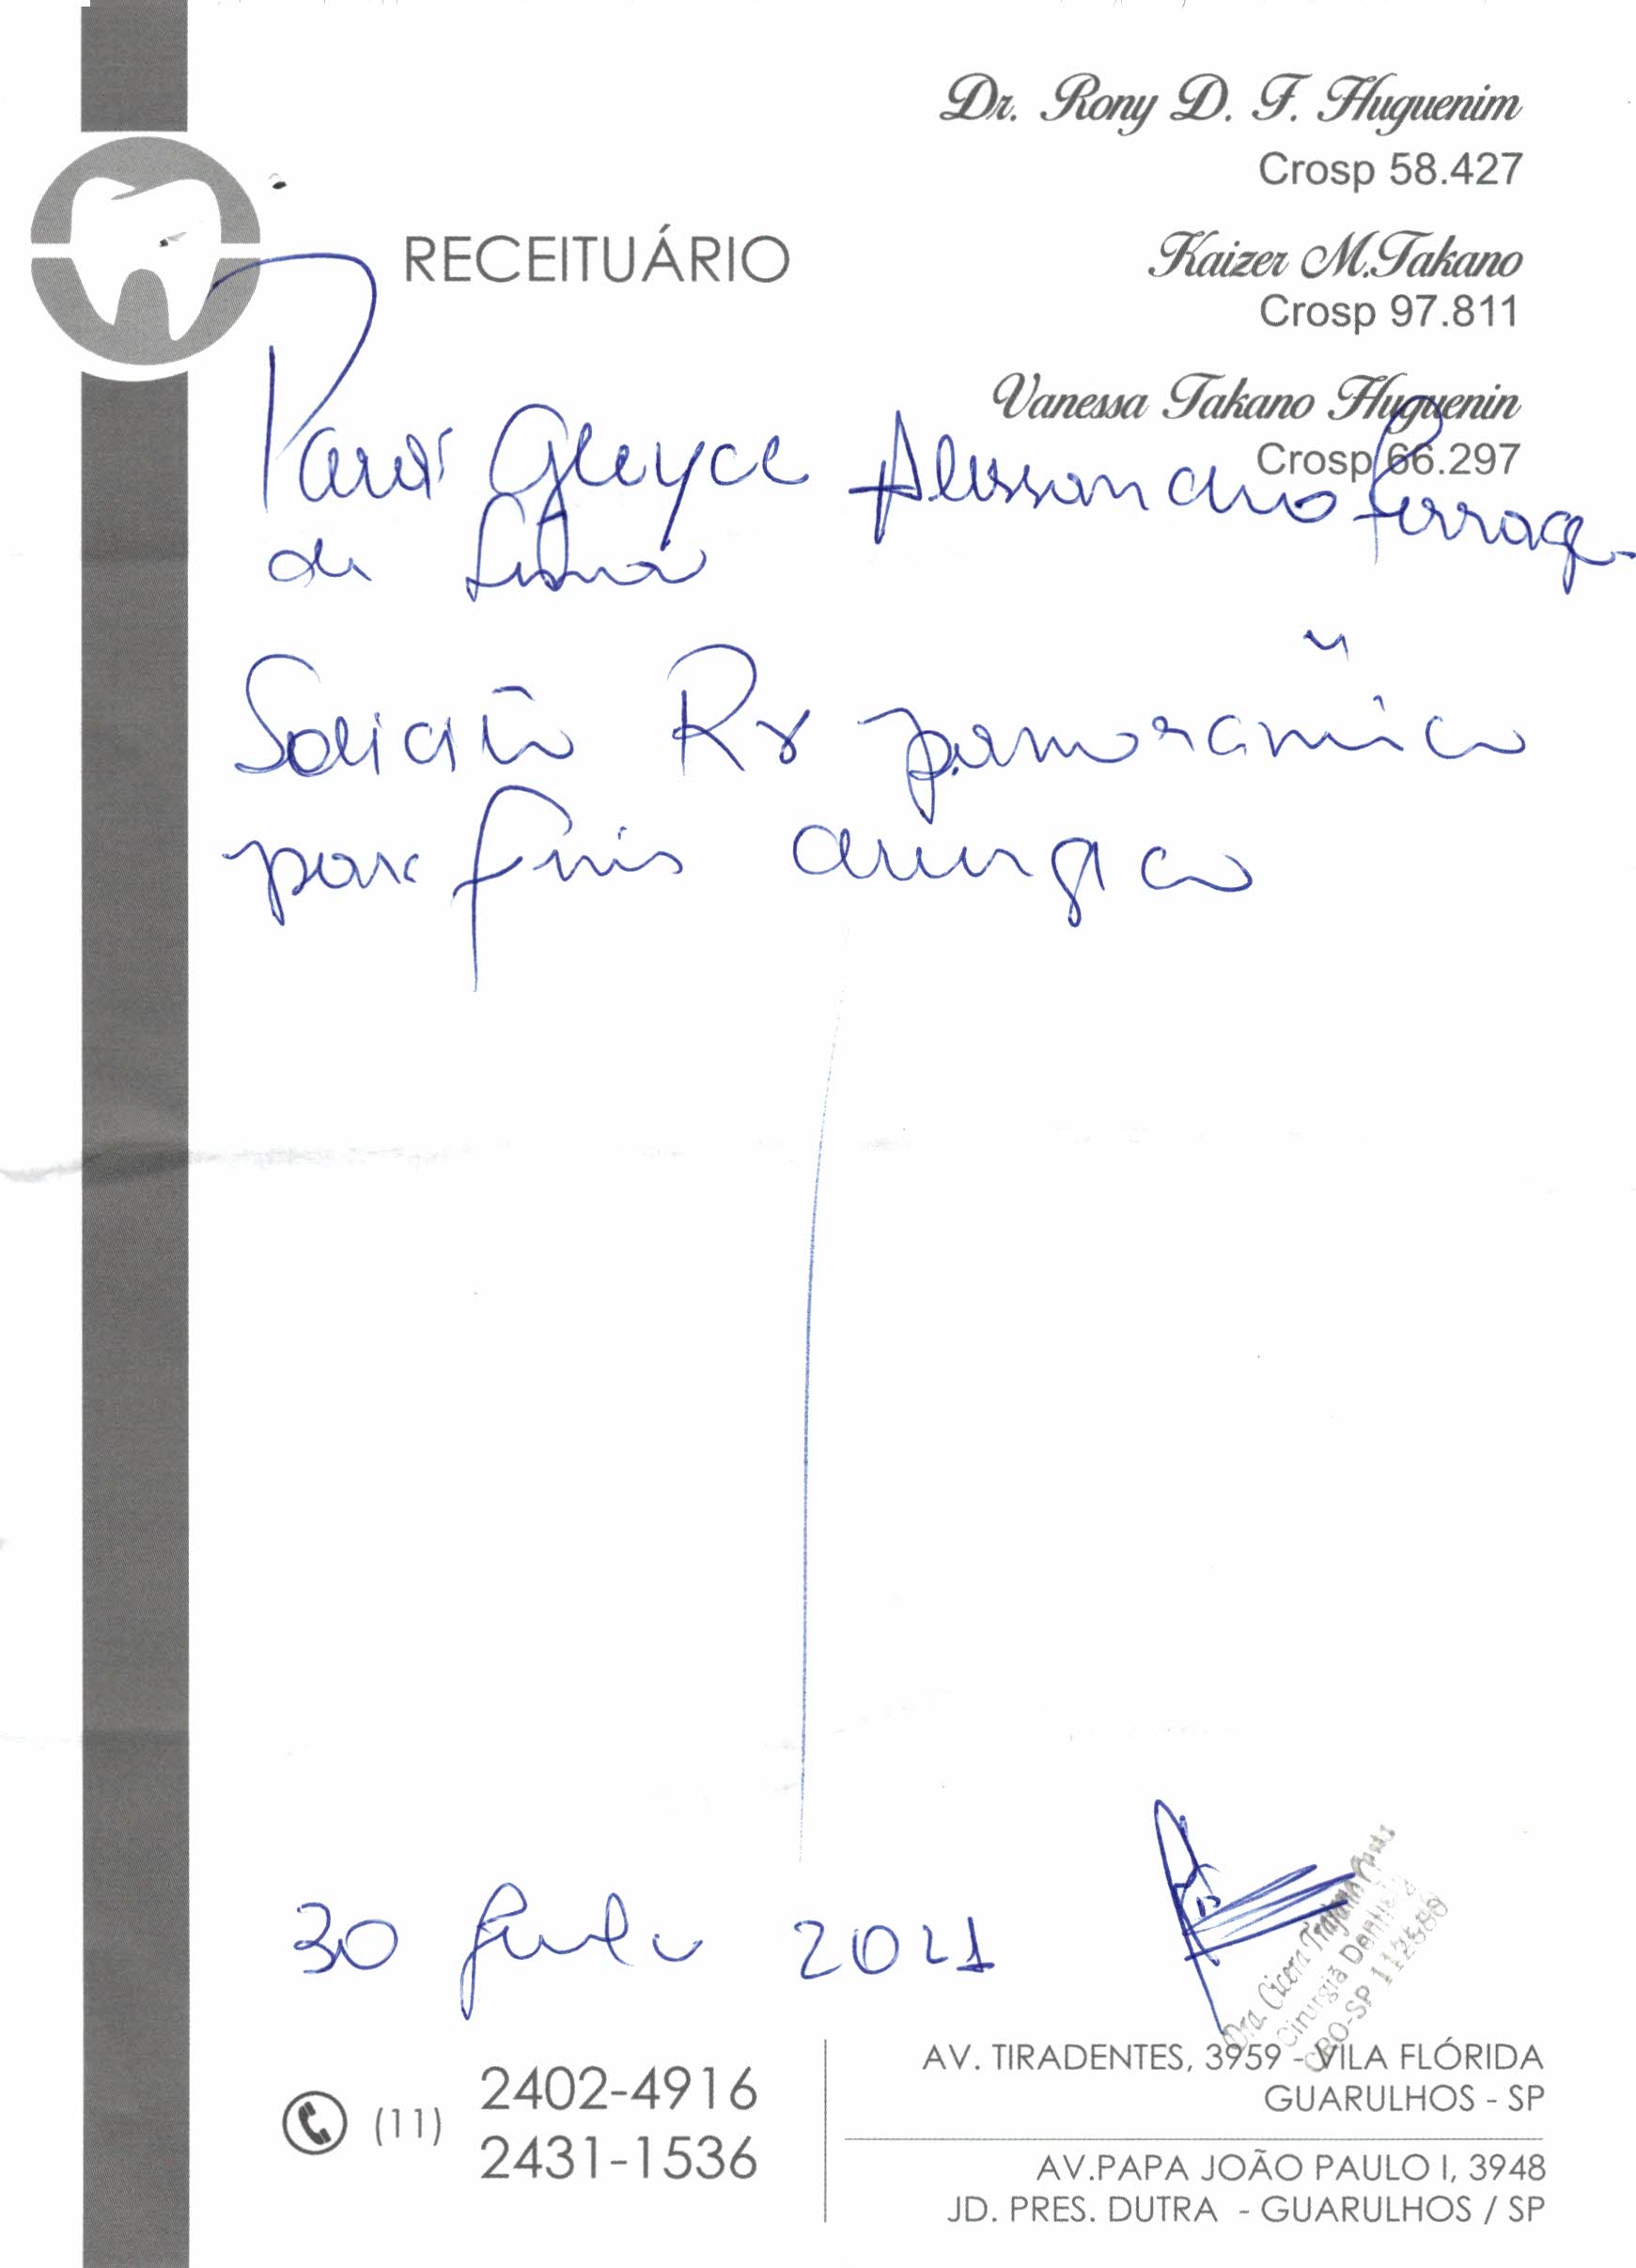 Dr. Rony D. F. Huguenim
Crosp 58.427
RECEITUÁRIO
Kaizer M.Takano
Crosp 97.811
Vanessa Takano Huguenin
Crosp 66.297
Para Gleyce Alessandra
de Lima
Solicito Rx panorâmico
para fins cirurgico
30 Junho 2021
Dra. Cicera Trajano
Cirurgiã Dentista
CRO-SP 112580
(11) 2402-4916
2431-1536
AV. TIRADENTES, 3959 - VILA FLÓRIDA
GUARULHOS - SP
AV.PAPA JOÃO PAULO I, 3948
JD. PRES. DUTRA - GUARULHOS / SP